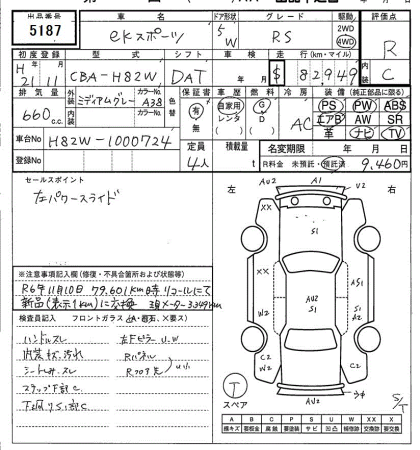 出品番号
5187
車名
ekスポーツ
ドア形状
5
W
グレード
RS
駆動
2WD
4WD
評価点
R
C
初度登録
H
21 年 11 月
型式
CBA-H82W
シフト
DAT
車検
年 月
走行(km・マイル)
$ 82,949
排気量
660 c.c.
外装
内装
ミディアムグレー
カラーNo.
A38
カラーNo.
色替
保証書
有
無
車歴
自家用
レンタ
( )
燃料
G
D
( )
冷房
AC
装備(純正部品に限る)
PS PW ABS
エアB AW SR
革 ナビ TV
車台No
H82W-1000724
登録No
定員
4人
積載量
t
名変期限
年 月 日
R料金 未預託・預託済
9,460円
セールスポイント
左パワースライド
※注意事項記入欄(修復・不具合箇所および状態等)
R6年11月10日 79,601km時リコールにて
新品(表示1km)に交換 現メーター3,349km
検査員記入 フロントガラス(A・飛石、×要ス)
ハンドルスレ
内装 汚れ
シート スレ
ステップ下部C
左Fピラー U.W
Rパネル
Rフロア
左 右
AU2 A1 U2
XX XX
S1
AU2
S1
W2
W2
AS1
S1
A2
C2
W2
C2
C2
AU2
T
スペア
S/T
A B C P S U W X XX
線キズ 要板金 腐蝕 要塗装 サビ 凹凸 補修跡 交換跡 要交換